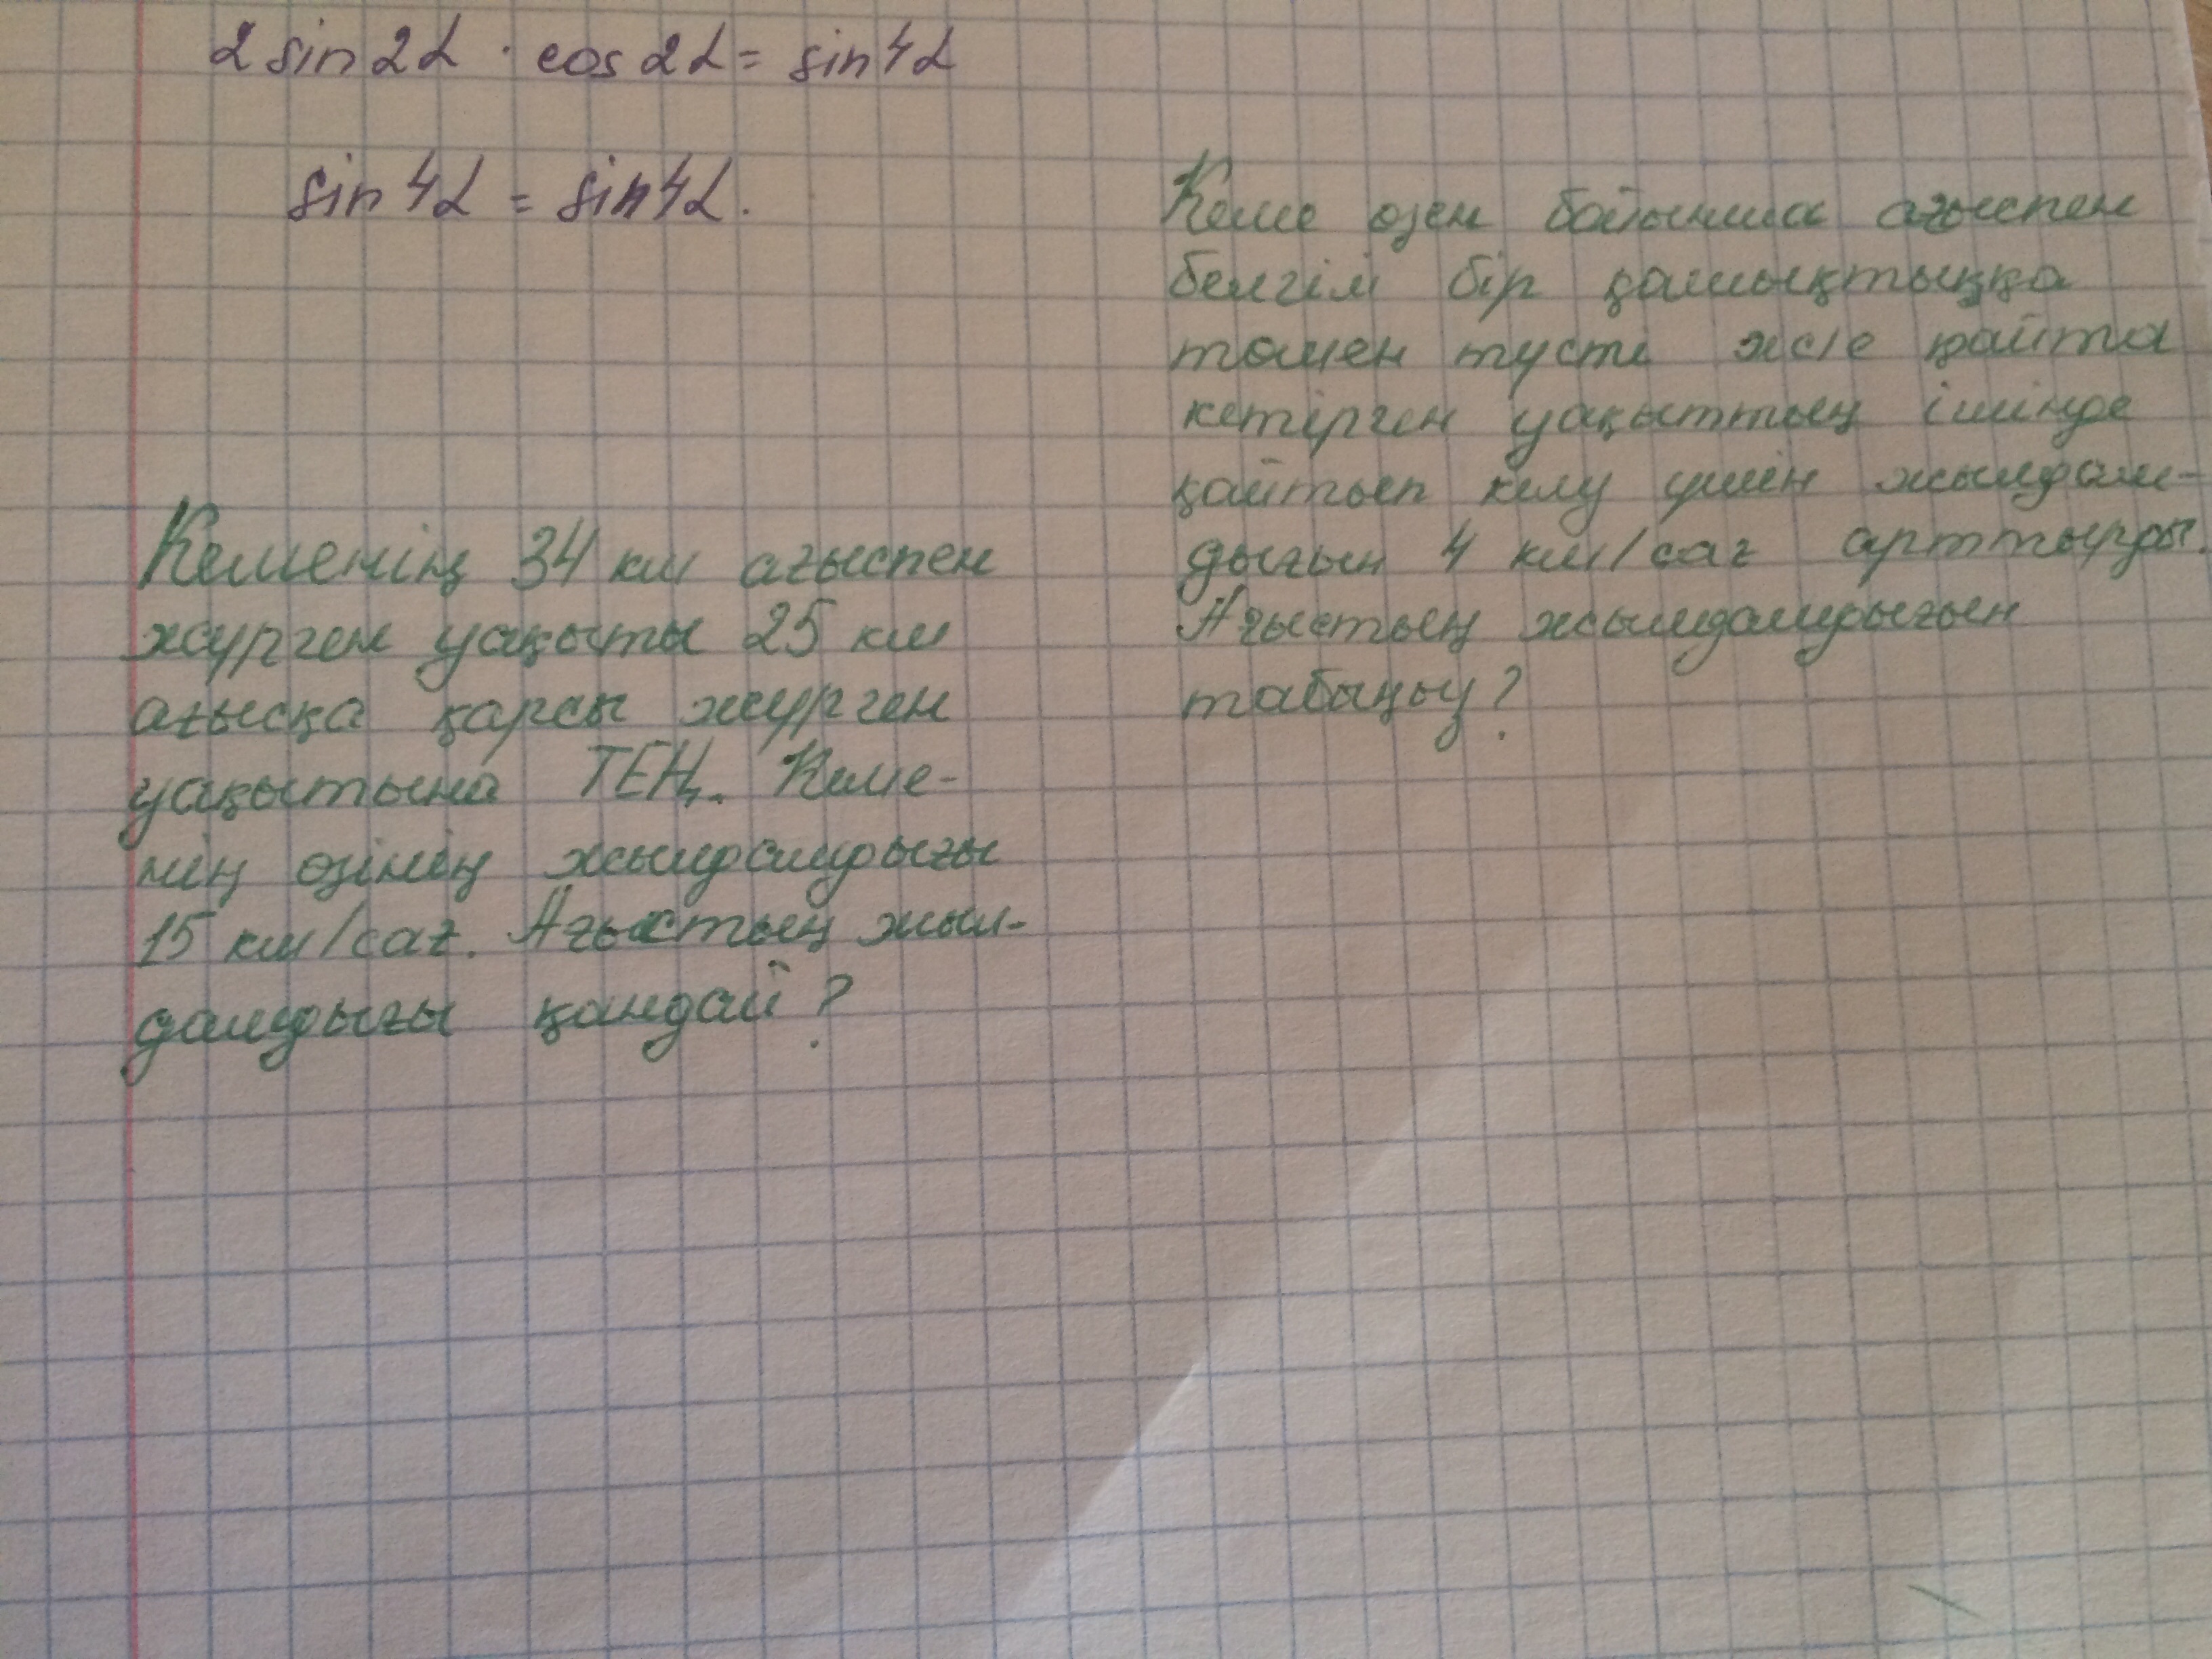 2 sin 2α · cos 2α = sin 4α
sin 4α = sin 4α.
Кеменің 34 км ағыспен
жүрген уақыты 25 км
ағысқа қарсы жүрген
уақытына ТЕҢ. Кеме-
нің өзінің жылдамдығы
15 км/сағ. Ағыстың жыл-
дамдығы қандай?
Кеме өзен бойынша ағыспен
белгілі бір қашықтыққа
төмен түсті ж/е қайта
кетірген уақыттың ішінде
қайтып келу үшін жылдам-
дығын 4 км/сағ арттырды.
Ағыстың жылдамдығын
табыңыз?